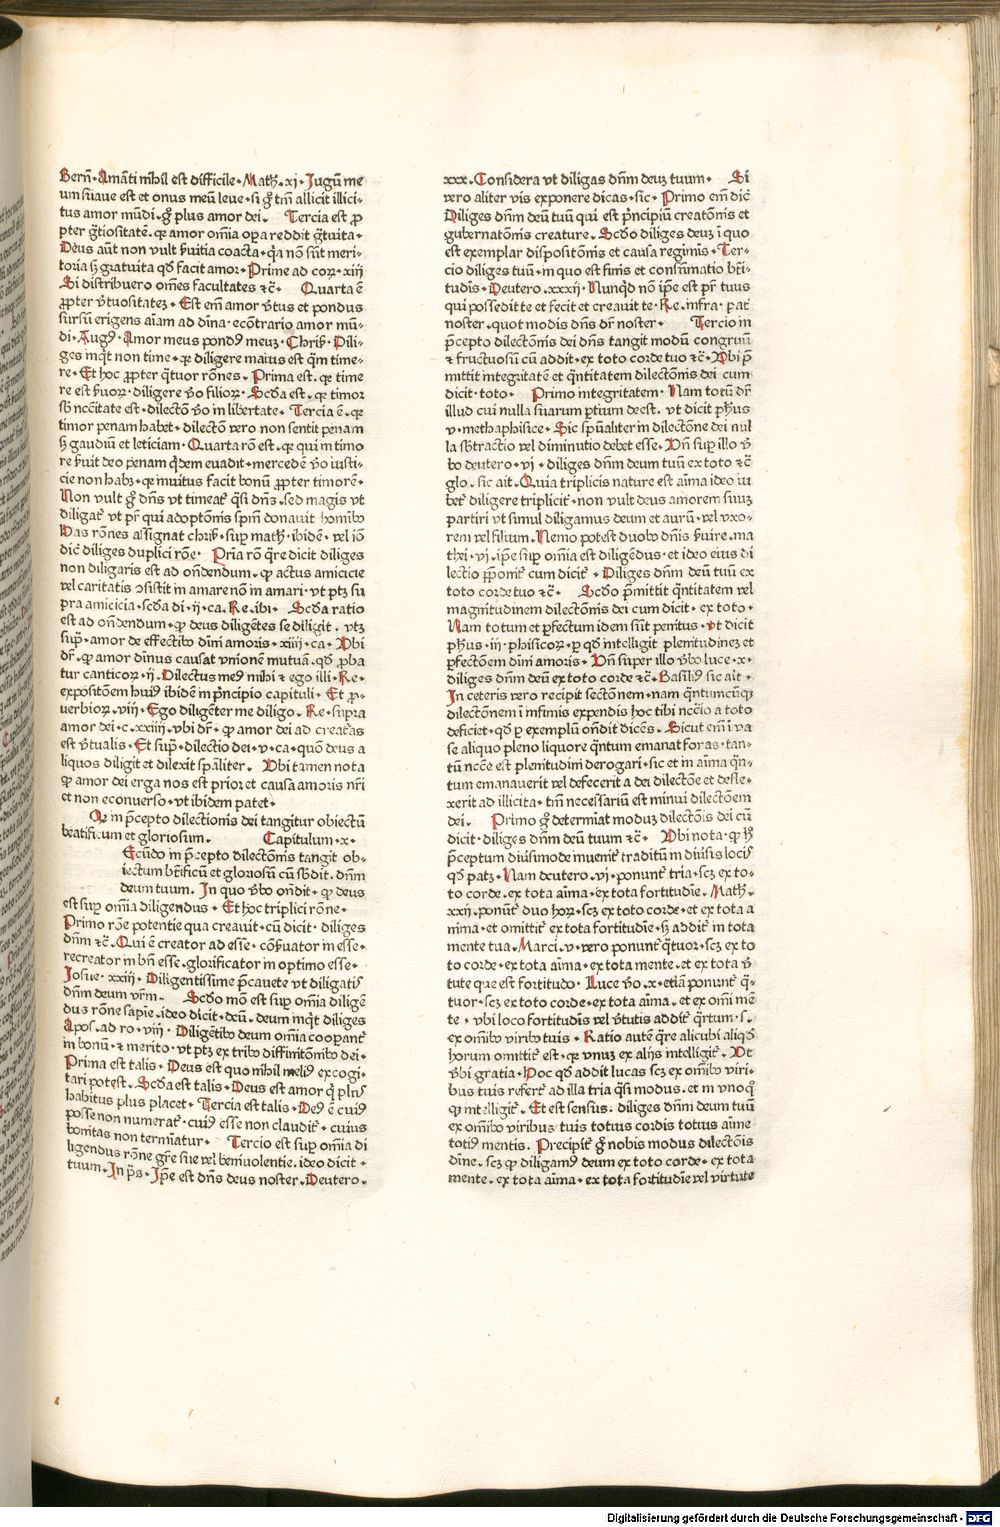 Bern̄. Amāti nihil est difficile. Math̄. xi. Jugū me
um suaue est et onus meū leue. si g̊ tm̄ allicit illici-
tus amor mūdi. g̊ plus amor dei. Tercia est ꝓ
pter ḡtiositatē. qꝛ amor om̄ia oꝑa reddit ḡtuita.
Deus aūt non vult ẜuitia coacta. q̄a nō sūt meri-
toria sꝫ gratuita qd̄ facit amor. Prime ad corꝝ. xiii
Si distribuero om̄es facultates ⁊c̄. Quarta ē
ꝓpter v̄tuositatez. Est em̄ amor v̄tus et pondus
sursū erigens aīam ad dīna. ecōtrario amor mū-
di. Augꝰ. Amor meus pondꝰ meuz. Chris̄. Dili-
ges inq̄t non time. qꝛ diligere maius est q̄m time-
re. Et hoc ꝓpter q̄tuor rōnes. Prima est. qꝛ time
re est ẜuorꝝ. diligere v̄o filiorꝝ. Scd̄a est. qꝛ timor
sb̄ nc̄c̄itate est. dilectō v̄o in libertate. Tercia ē. qꝛ
timor penam habet. dilectō vero non sentit penam
sꝫ gaudiū et leticiam. Quarta rō est. qꝛ qui in timo
re ẜuit deo penam q̄dem euadit. mercedē v̄o iusti-
cie non habꝫ. qꝛ inuitus facit bonū ꝓpter timorē.
Non vult g̊ dn̄s vt timeat᷑ q̄si dn̄s. sed magis vt
diligat᷑ vt pr̄ qui adoptōnis spm̄ donauit homībꝰ
Has rōnes assignat chris̄. suꝑ math̄. ibidē. vel iō
dic̄ diliges duplici rōe. Pria rō q̄re dicit diliges
non diligaris est ad on̄dendum. ꝙ actus amicicie
vel caritatis ↄsistit in amare nō in amari. vt ptꝫ su
pra amicicia. scd̄a di. ii. ca. Re. ibi. Scd̄a ratio
est ad on̄dendum. ꝙ deus diligētes se diligit. vtꝫ
sup̄. amor de effectibꝰ dīni amoris. xiiii. ca. Vbi
dr̄. ꝙ amor dīnus causat vnionē mutuā. qd̄ ꝓba
tur canticorꝝ. ii. Dilectus meꝰ mihi ⁊ ego illi. Re.
expositōem huiꝰ ibidē in p̄ncipio capituli. Et ꝓ-
verbiorꝝ. viii. Ego diligēter me diligo. Re. supra
amor dei. c. xxiiii. vbi dr̄. ꝙ amor dei ad creat᷑as
est v̄tualis. Et sup̄. dilectio dei. v. ca. quō deus a
liquos diligit et dilexit spāliter. Vbi tamen nota
ꝙ amor dei erga nos est prior et causa amoris nr̄i
et non econuerso. vt ibidem patet.
Qꝛ in p̄cepto dilectionis dei tangitur obiectū
beatificum et gloriosum. Capitulum. x.
Ecūdo in p̄cepto dilectōnis tangit ob-
iectum bt̄ificū et gloriosū cū sb̄dit. dn̄m
deum tuum. In quo v̄bo on̄dit. ꝙ deus
est suꝑ om̄ia diligendus. Et hoc triplici rōne.
Primo rōe potentie qua creauit. cū dicit. diliges
dn̄m ⁊c̄. Qui ē creator ad esse. cōẜuator in esse.
recreator in bn̄ esse. glorificator in optimo esse.
Josue. xxiii. Diligentissime p̄cauete vt diligatis
dn̄m deum vr̄m. Scd̄o mō est suꝑ om̄ia diligē
dus rōne sapīe. ideo dicit. deū. deum inq̄t diliges
Apos. ad ro. viii. Diligētibꝰ deum om̄ia coopant᷑
in bonū. ⁊ merito. vt ptꝫ ex tribꝰ diffinitōnibꝰ dei.
Prima est talis. Deus est quo nihil meliꝰ excogi-
tari potest. Scd̄a est talis. Deus est amor q̇ plꝰ
habitus plus placet. Tercia est talis. Deꝰ ē cuiꝰ
posse non numerat᷑. cuiꝰ esse non claudit᷑. cuius
bonitas non terminatur. Tercio est suꝑ om̄ia di
ligendus rōne gr̄e sue vel beniuolentie. ideo dicit.
tuum. In p̄s. Ip̄e est dn̄s deus noster. Deutero.
xxx. Considera vt diligas dn̄m deuz tuum. Si
vero aliter vis exponere dicas. sic. Primo em̄ dic̄
Diliges dn̄m deū tuū qui est p̄ncipiū creatōnis et
gubernatōnis creature. Scd̄o diliges deuz ī quo
est exemplar dispositōnis et causa regiminis. Ter-
cio diliges tuū. in quo est finis et consūmatio bt̄i-
tudīs. Deutero. xxxij. Nunqd̄ nō ip̄e est pr̄ tuus
qui possedit te et fecit et creauit te. Re. infra. pat᷑
noster. quot modis dn̄s dr̄ noster. Tercio in
p̄cepto dilectōnis dei dn̄s tangit modū congruū
⁊ fructuosū cū addit. ex toto corde tuo ⁊c̄. Vbi p̄
mittit integritatē et q̄ntitatem dilectōnis dei cum
dicit. toto. Primo integritatem. Nam totū dr̄
illud cui nulla suarum ꝑtium deest. vt dicit ph̄us
v. methaphisice. Sic spūaliter in dilectōne dei nul
la sb̄tractio vel diminutio debet esse. Vn̄ suꝑ illo v̄
bo deutero. vj. diliges dn̄m deum tuū ex toto ⁊c̄
glo. sic ait. Quia triplicis nature est aīma ideo iu
bet᷑ diligere triplicit᷑. non vult deus amorem suuz
partiri vt simul diligamus deum et aurū. vel vxo-
rem vel filium. Nemo potest duobꝰ dn̄is ẜuire. ma
thei. vi. ip̄e suꝑ om̄ia est diligēdus. et ideo eius di
lectio p̄pōnit᷑ cum dicit᷑. Diliges dn̄m deū tuū ex
toto corde tuo ⁊c̄. Scd̄o p̄mittit q̄ntitatem vel
magnitudinem dilectōnis dei cum dicit. ex toto.
Nam totum et ꝑfectum idem sūt penitus. vt dicit
ph̄us. iii. phisicorꝝ. ꝑ qd̄ intelligit plenitudinez et
ꝑfectōem dīni amoris. Vn̄ super illo v̄bo luce. x.
diliges dn̄m deū tuū ex toto corde ⁊c̄. Basiliꝰ sic ait.
In ceteris vero recipit sectōnem. nam q̄ntumcūqꝫ
dilectōnem ī infimis expendis hoc tibi nc̄c̄io a toto
deficiet. qd̄ ꝑ exemplū on̄dit dicēs. Sicut em̄ ī va
se aliquo pleno liquore q̄ntum emanat foras. tan-
tū nc̄c̄e est plenitudini derogari. sic et in aīma q̄n-
tum emanauerit vel defecerit a dei dilectōe et defle-
xerit ad illicita. tm̄ necessariū est minui dilectōem
dei. Primo g̊ determīat moduz dilectōis dei cū
dicit. diliges dn̄m deū tuum ⁊c̄. Vbi nota. ꝙ hꝰ
p̄ceptum diūsimode inuenit᷑ traditū in diūsis locis
qd̄ patꝫ. Nam deutero. vj. ponunt᷑ tria. scꝫ ex to-
to corde. ex tota aīma. ex tota fortitudīe. Math̄.
xxij. ponūt᷑ duo horꝝ. scꝫ ex toto corde. et ex tota a
nima. et omittit᷑ ex tota fortitudīe. sꝫ addit᷑ in tota
mente tua. Marci. v. vero ponunt᷑ q̄tuor. scꝫ ex to
to corde. ex tota aīma. ex tota mente. et ex tota v̄
tute que est fortitudo. Luce v̄o. x. etiā ponunt᷑ q̄-
tuor. scꝫ ex toto corde. ex tota aīma. et ex omī mē
te. vbi loco fortitudīs vel v̄tutis addit᷑ q̄rtum. s.
ex om̄ibꝰ viribꝰ tuis. Ratio autē q̄re alicubi aliqd̄
horum omittit᷑ est. qꝛ vnuz ex alijs intelligit᷑. Vt
v̄bi gratia. Hoc qd̄ addit lucas scꝫ ex om̄ibꝰ viri-
bus tuis refert᷑ ad illa tria q̄si modus. et in vnoq̊
qꝫ intelligit᷑. Et est sensus. diliges dn̄m deum tuū
ex om̄ibꝰ viribus tuis totus cordis totus aīme
totiꝰ mentis. Precipit᷑ g̊ nobis modus dilectōis
dīne. scꝫ ꝙ diligamꝰ deum ex toto corde. ex tota
mente. ex tota aīma. ex tota fortitudīe vel virtute
Digitalisierung gefördert durch die Deutsche Forschungsgemeinschaft - DFG